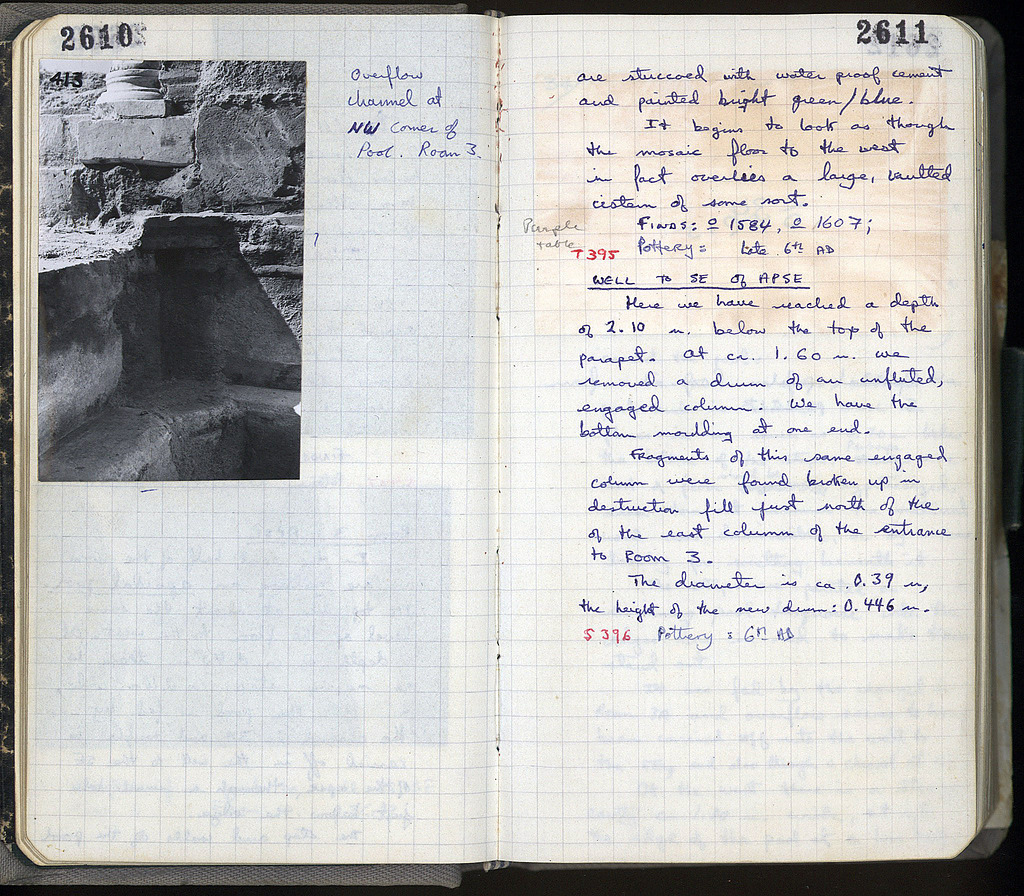 2610
413
Overflow
channel at
NW Corner of
Pool. Room 3.
2611
are stuccoed with water proof cement
and painted bright green/blue.
It begins to look as though
the mosaic floor to the west
in fact overlies a large, vaulted
cistern of some sort.
Purple
table
FINDS: 1584, 1607;
T 395 Pottery: Late 6th AD
WELL TO SE OF APSE
Here we have reached a depth
of 2.10 m. below the top of the
parapet. At ca. 1.60 m. we
removed a drum of an unfluted,
engaged column. We have the
bottom moulding at one end.
Fragments of this same engaged
column were found broken up in
destruction fill just north of the
of the east column of the entrance
to Room 3.
The diameter is ca 0.39 m,
the height of the new drum: 0.446 m.
S 396 Pottery: 6th AD